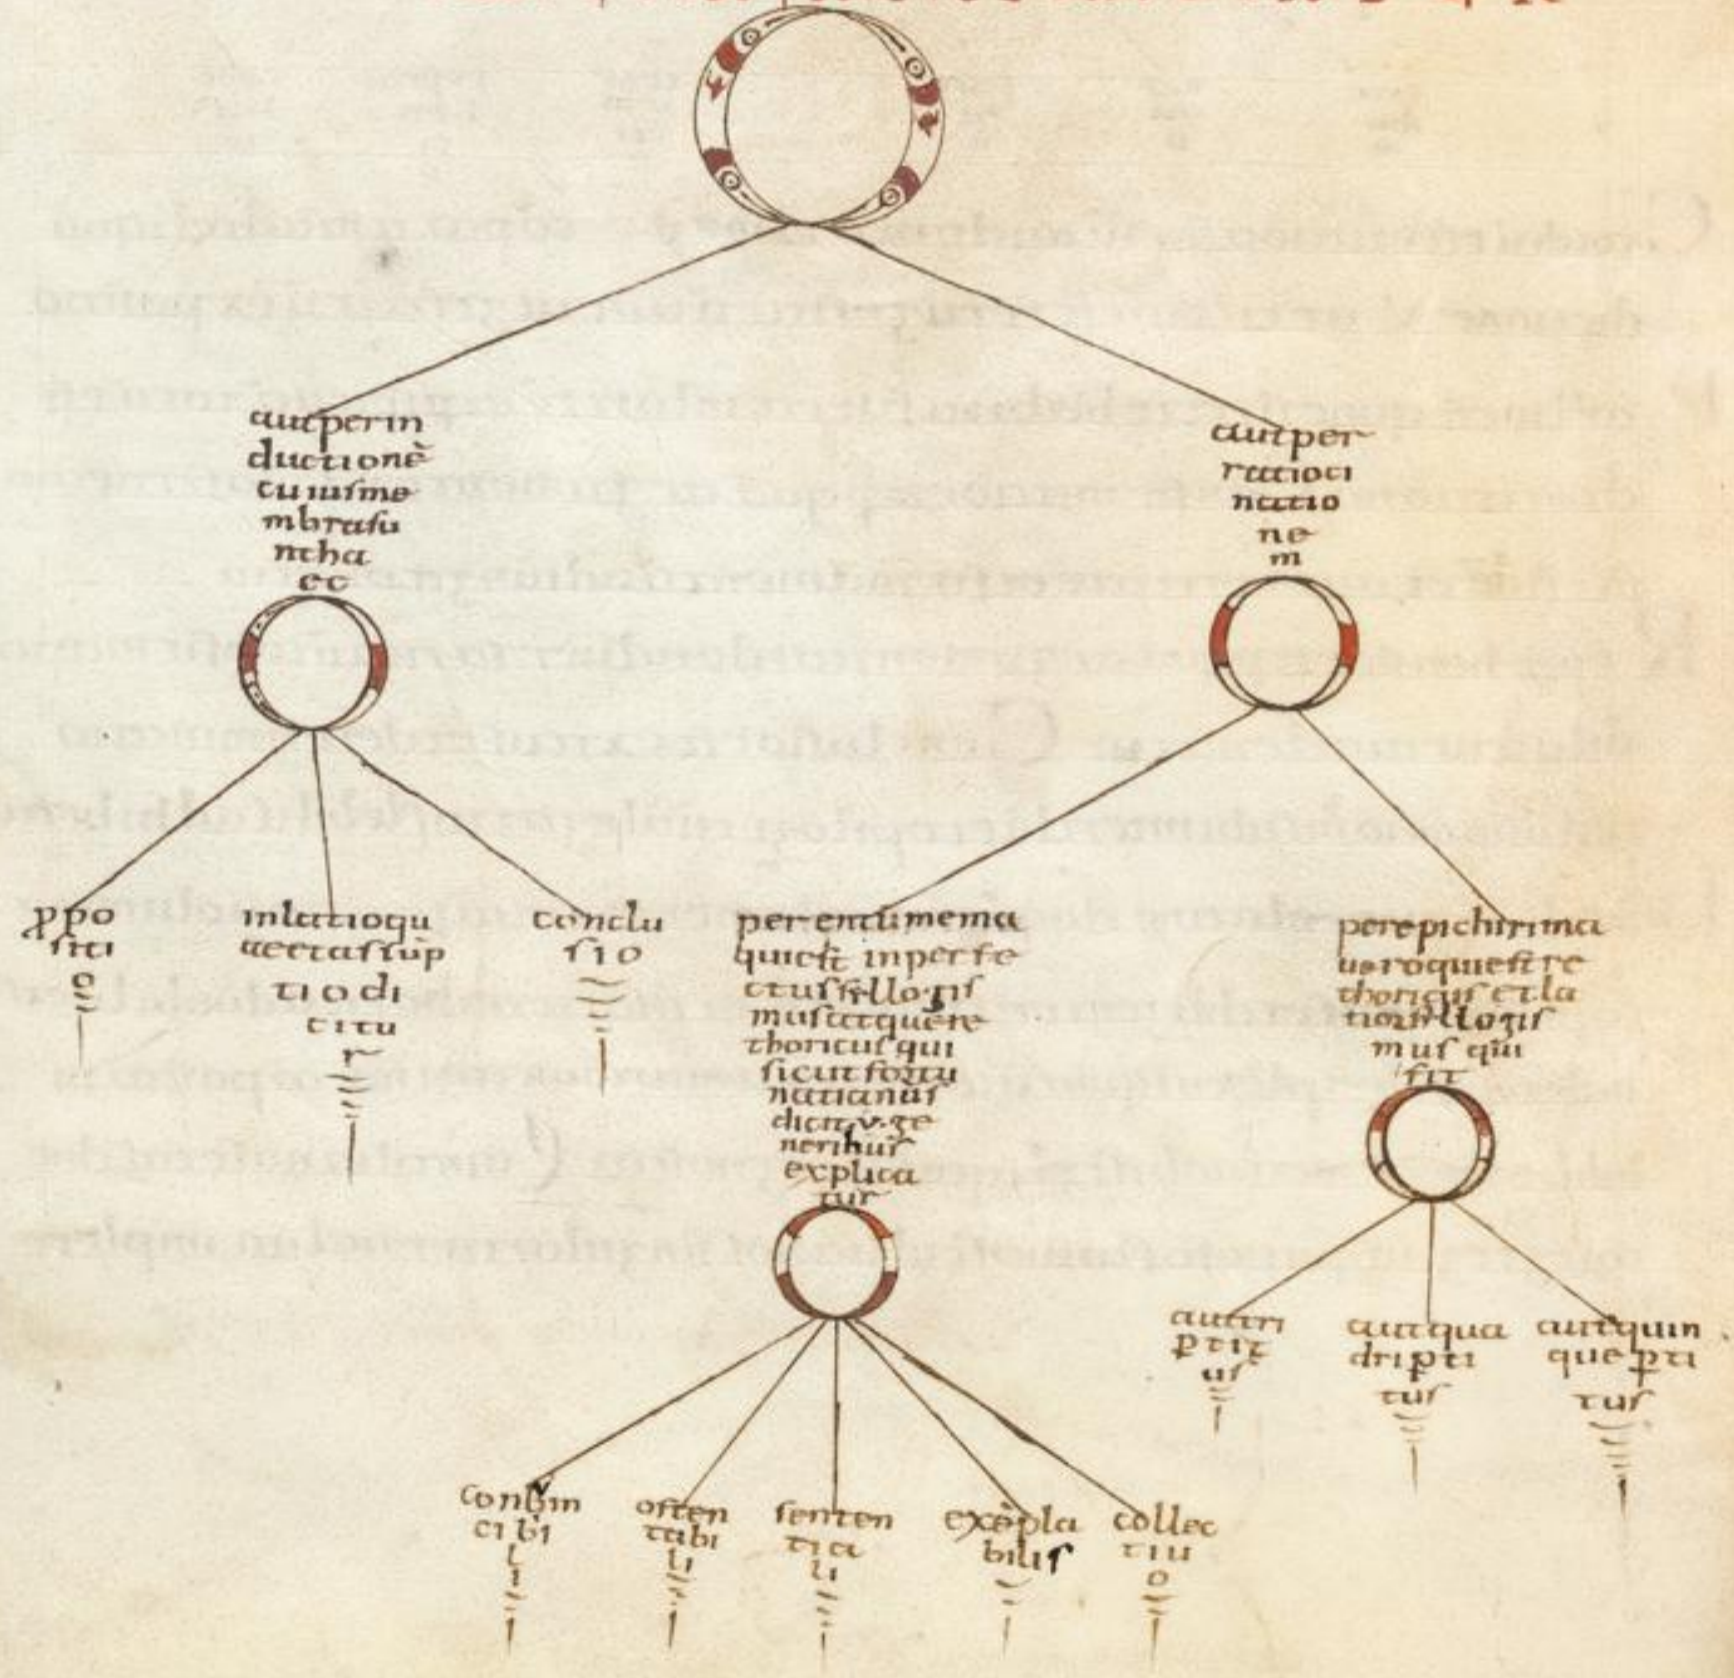 aut per in
ductionē
cuius me
mbra su
nt ha
ec
aut per
ratioci
natio
ne
m
ꝓpo
siti
o
inlatio qu
ae et assūp
tio di
citu
r
conclu
sio
per entumema
qui est inperfe
ctus sillogis
mus atque re
thoricus qui
sicut fortu
natianus
dicit v. ge
neribus
explica
tur
per epichirima
uero qui est re
thoricus et la
tior sillogis
mus qui
fit
aut tri
ꝑtit
us
aut qua
driꝑti
tus
aut quin
que ꝑti
tus
conbin
cibi
li
osten
tabi
li
senten
tia
li
exēpla
bilis
collec
tiu
o